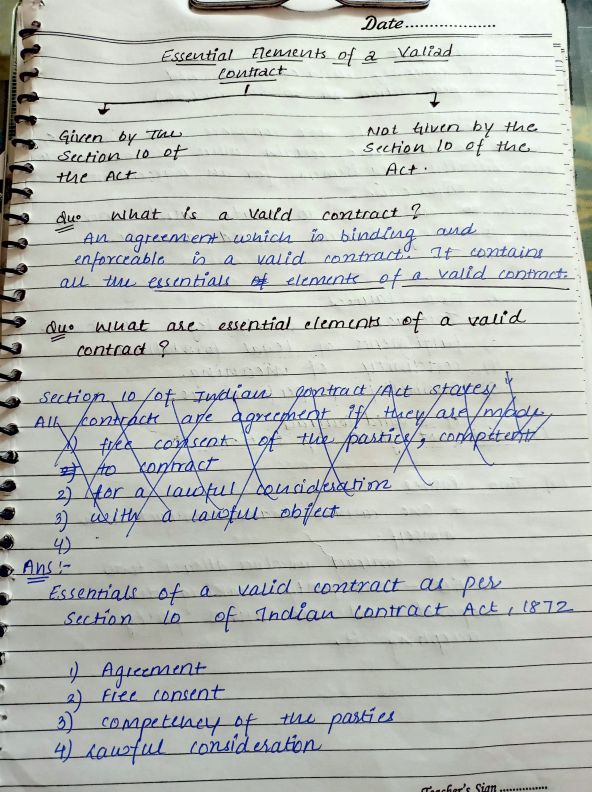 Date...................
Essential Elements of a Valiad
Contract
Given by The
Section 10 of
the Act
Not Given by the
Section 10 of the
Act.
Que What is a Valid contract ?
An agreement which is binding and
enforceable is a valid contract. It contains
all the essentials of elements of a valid contract.
Que What are essential elements of a valid
contract ?
Section 10 of Indian Contract Act states
All contracts are agreement if they are made
1) free consent of the parties, competent
2) to contract
2) for a lawful consideration
3) with a lawful object
4)
Ans :-
Essentials of a valid contract as per
Section 10 of Indian Contract Act, 1872
1) Agreement
2) Free consent
3) competency of the parties
4) Lawful consideration
Teacher's Sign ...............